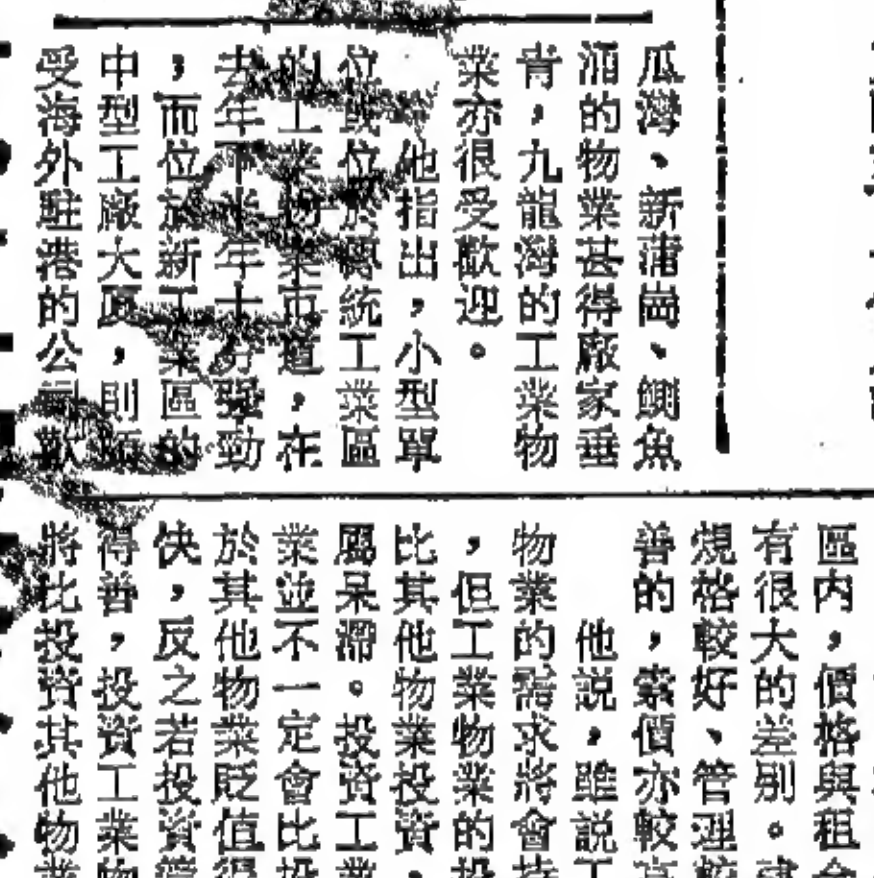 瓜灣、新蒲崗、鰂魚
涌的物業甚得廠家垂
青,九龍灣的工業物
業亦很受歡迎。
他指出,小型單
位或位於傳統工業區
的工業物業市道,在
去年下半年十分強勁
,而位於新工業區的
中型工廠大廈,則
受海外駐港的公司歡
區內,價格與租
有很大的差別。
規格較好、管理較
善的,索價亦較高
他説,雖説工
物業的需求將會持
,但工業物業的投
比其他物業投資,
屬呆滯。投資工業
業並不一定會比投
於其他物業貶值得
快,反之若投資
得普,投資工業物
將比投資其他物業